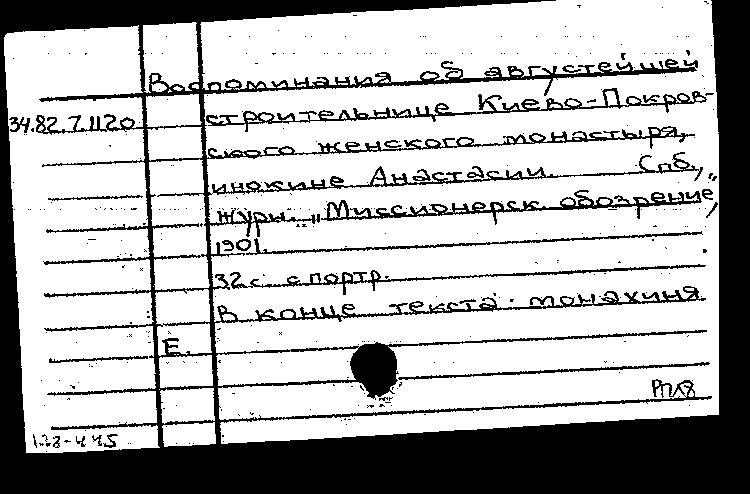 Воспоминания об августейшей
34.82.7.1120 строительнице Киево-Покров-
ского женского монастыря,
инокине Анастасии. Спб.,
журн. „Миссионерск. обозрение“,
1901.
32 с. с портр.
В конце текста: монахиня
Е.
РП18
138-445